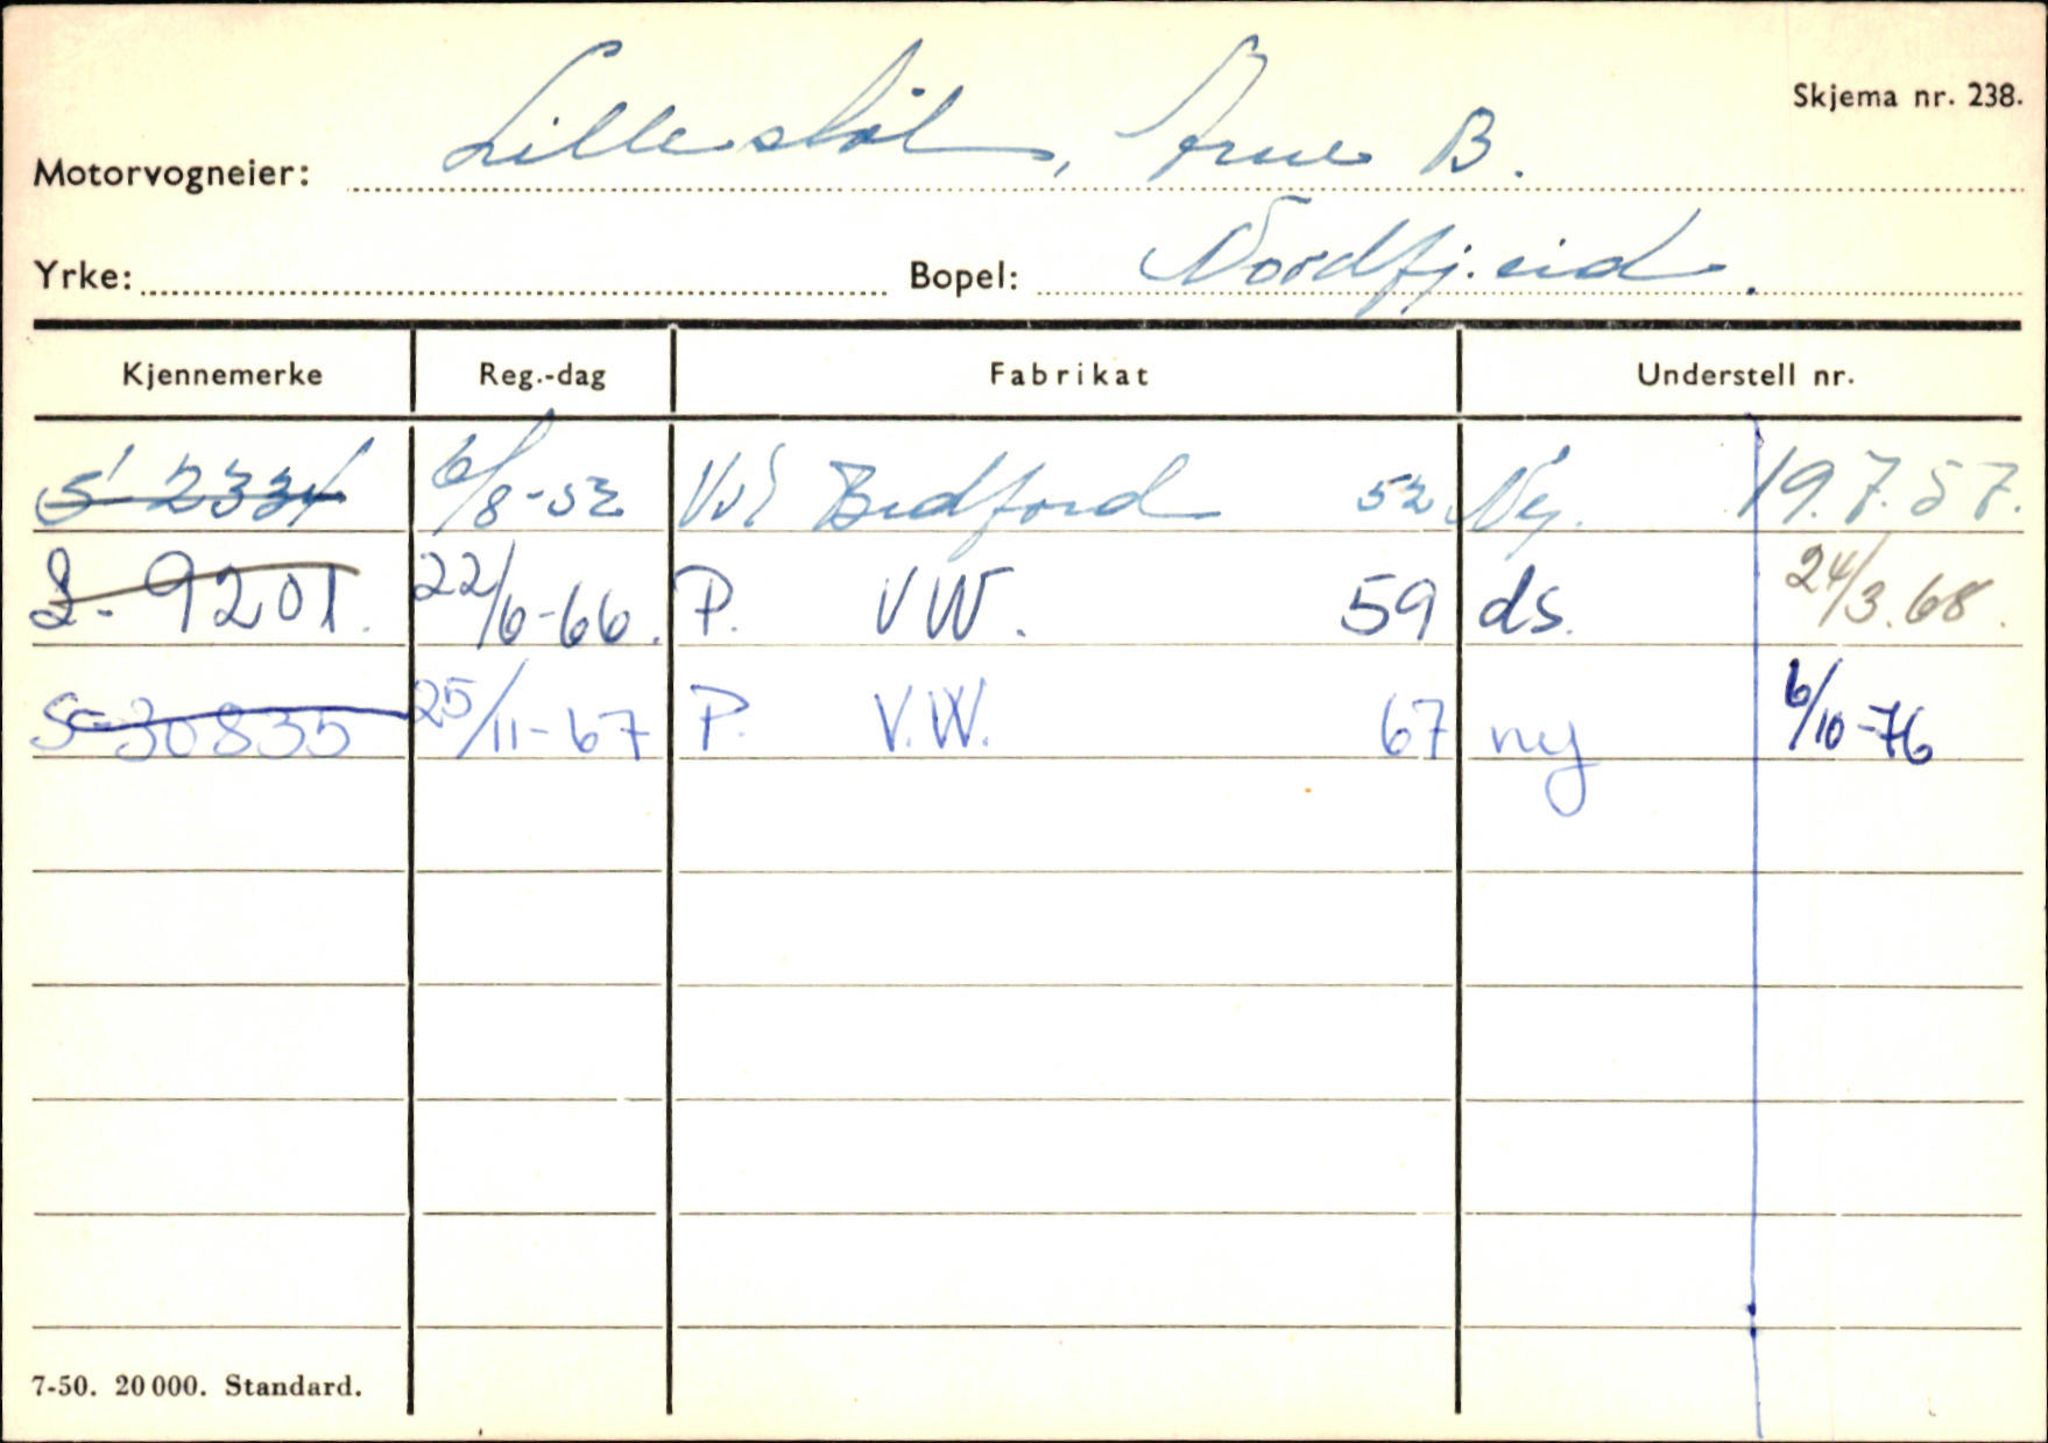 Skjema nr. 238.
Motorvogneier: Lillestøl, Arne B.
Yrke: Bopel: Nordfj.eid.
Kjennemerke Reg.-dag Fabrikat Understell nr.
S 2334 6/8-52 Bedford 52 Ny. 19.7.57.
9201. 22/6-66. P. VW. 59 ds. 24/3.68.
S-30835 25/11-67 P. V.W. 67 ny 6/10-76
7-50. 20000. Standard.